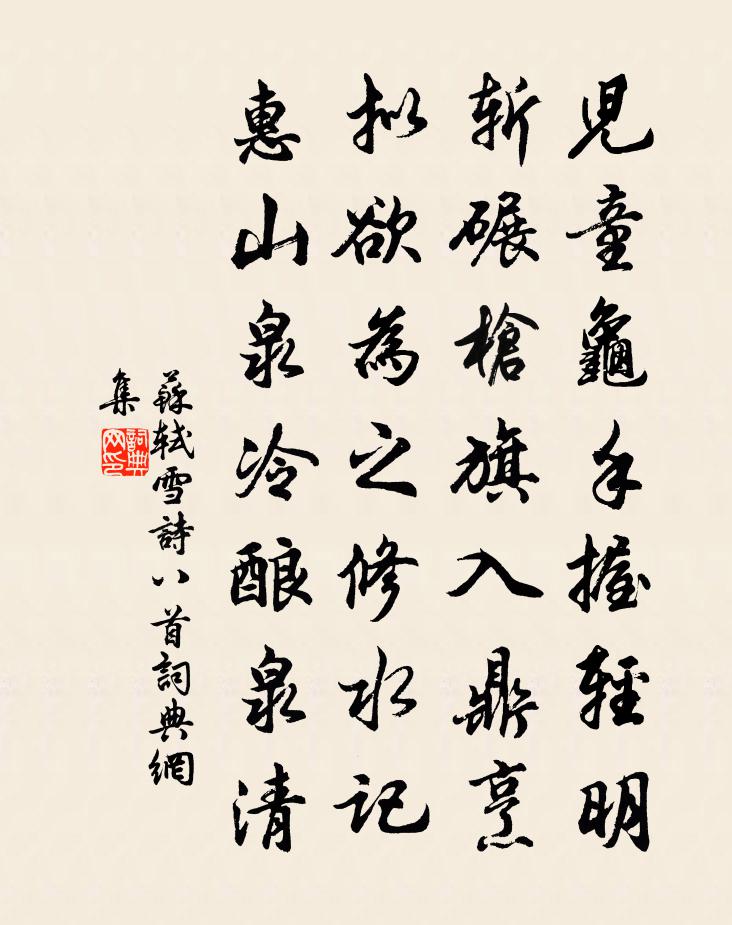 兒童龜手握輕明
斬碾槍旗入鼎烹
拟欲為之修水記
惠山泉冷酿泉清
蘇軾雪詩八首詞典網
集
詞典网印